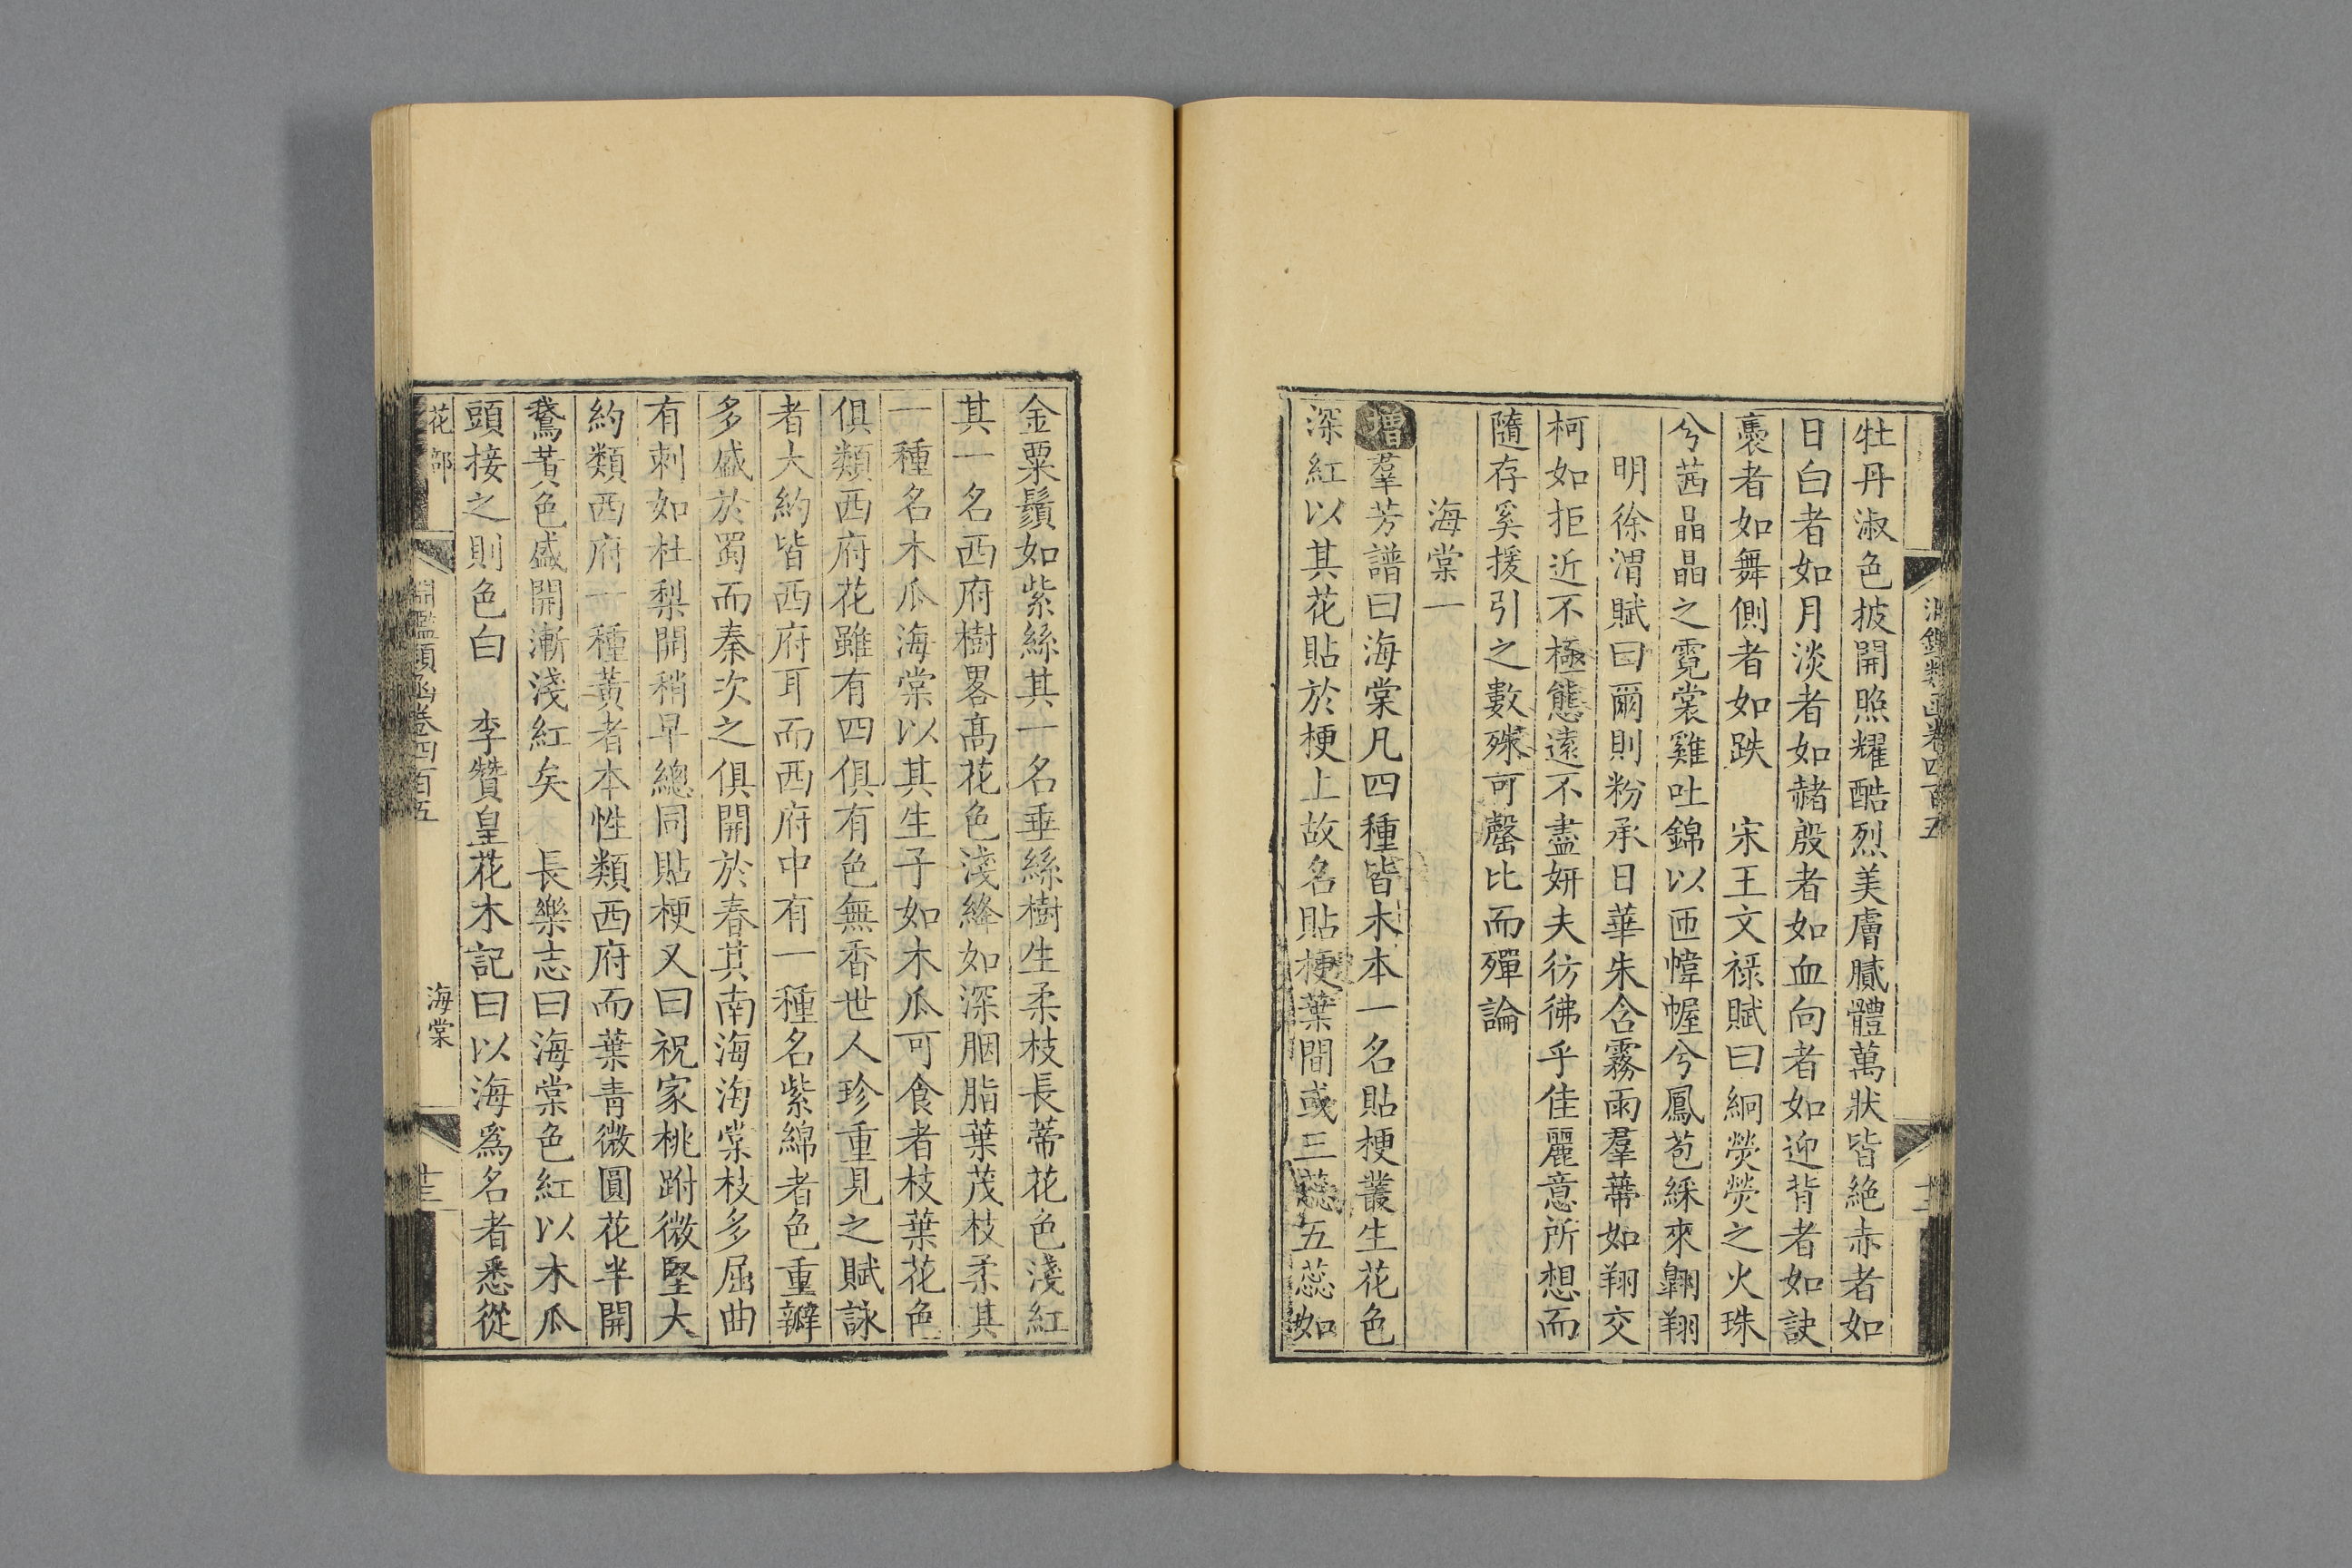 牡丹淑色披開照耀酷烈美膚膩體萬狀皆絶赤者如
日白者如月淡者如赭殷者如血向者如迎背者如訣
裛者如舞側者如跌　宋王文祿賦曰絅熒熒之火珠
兮茜晶晶之霓裳雞吐錦以匝幃幄兮鳳苞綵來翱翔
明徐渭賦曰爾則粉承日華朱含霧雨羣蕚如翔交
柯如拒近不極態遠不盡妍夫彷彿乎佳麗意所想而
隨存奚援引之數殊可罄比而殫論
海棠一
增羣芳譜曰海棠凡四種皆木本一名貼梗叢生花色
深紅以其花貼於梗上故名貼梗葉間或三蕊五蕊如
金粟鬚如紫絲其一名垂絲樹生柔枝長蒂花色淺紅
其一名西府樹畧髙花色淺絳如深胭脂葉茂枝柔其
一種名木瓜海棠以其生子如木瓜可食者枝葉花色
俱類西府花雖有四俱有色無香世人珍重見之賦詠
者大約皆西府耳而西府中有一種名紫綿者色重瓣
多盛於蜀而秦次之俱開於春其南海海棠枝多屈曲
有刺如杜梨開稍早總同貼梗又曰祝家桃跗微堅大
約類西府一種黃者本性類西府而葉青微圓花半開
鵞黃色盛開漸淺紅矣　長樂志曰海棠色紅以木瓜
頭接之則色白　李贊皇花木記曰以海爲名者悉從
花部
淵鑑類函卷四百五
海棠